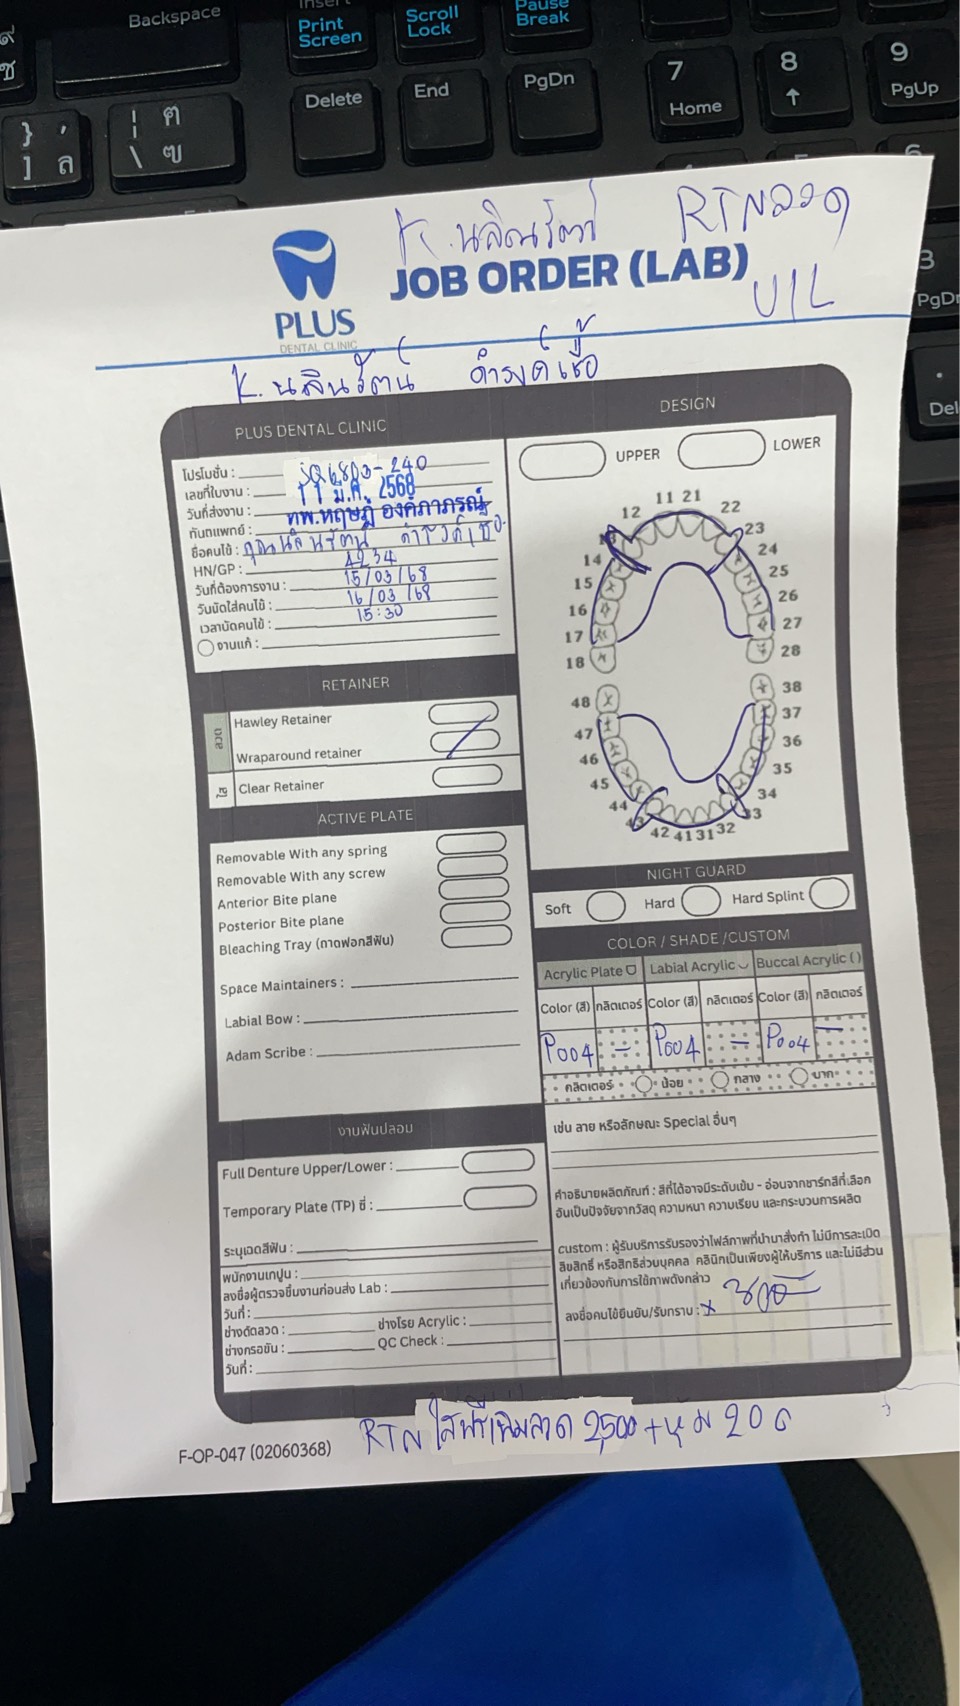 Backspace
Insert
Print Screen
Scroll Lock
Pause Break
Delete
End
PgDn
7 Home
8
9 PgUp
K. RTN ลวด
JOB ORDER (LAB)
U/L
PLUS
DENTAL CLINIC
K. นลินรัตน์ ดำรงค์เชื้อ
PLUS DENTAL CLINIC
โปรโมชั่น :
เลขที่ใบงาน : 6803-240
วันที่ส่งงาน : 11 มี.ค. 2568
ทันตแพทย์ : ทพ.หฤษฎ์ องค์ภาภรณ์
ชื่อคนไข้ : คุณนลินรัตน์ ดำรงค์เชื้อ
HN/GP : 4234
วันที่ต้องการงาน : 15/03/68
วันนัดใส่คนไข้ : 16/03/68
เวลานัดคนไข้ : 15:30
งานแก้ :
RETAINER
ลวด
Hawley Retainer
Wraparound retainer
ใส
Clear Retainer
ACTIVE PLATE
Removable With any spring
Removable With any screw
Anterior Bite plane
Posterior Bite plane
Bleaching Tray (ถาดฟอกสีฟัน)
Space Maintainers :
Labial Bow :
Adam Scribe :
งานฟันปลอม
Full Denture Upper/Lower :
Temporary Plate (TP) ซี่ :
ระบุเฉดสีฟัน :
พนักงานเทปูน :
ลงชื่อผู้ตรวจชิ้นงานก่อนส่ง Lab :
วันที่ :
ช่างดัดลวด : ช่างโรย Acrylic :
ช่างกรอขัด : QC Check :
วันที่ :
DESIGN
UPPER LOWER
11 21
12 22
23
14 24
15 25
16 26
17 27
18 28
48 38
47 37
46 36
45 35
44 34
43 33
42 41 31 32
NIGHT GUARD
Soft Hard Hard Splint
COLOR / SHADE /CUSTOM
Acrylic Plate Labial Acrylic Buccal Acrylic ( )
Color (สี) กลิตเตอร์ Color (สี) กลิตเตอร์ Color (สี) กลิตเตอร์
P004 - P004 - P004 -
กลิตเตอร์ น้อย กลาง มาก
เช่น ลาย หรือลักษณะ Special อื่นๆ
คำอธิบายผลิตภัณฑ์ : สีที่ได้อาจมีระดับเข้ม - อ่อนจากชาร์ทสีที่เลือก
อันเป็นปัจจัยจากวัสดุ ความหนา ความเรียบ และกระบวนการผลิต
custom : ผู้รับบริการรับรองว่าไฟล์ภาพที่นำมาสั่งทำ ไม่มีการละเมิด
ลิขสิทธิ์ หรือสิทธิส่วนบุคคล คลินิกเป็นเพียงผู้ให้บริการ และไม่มีส่วน
เกี่ยวข้องกับการใช้ภาพดังกล่าว
ลงชื่อคนไข้ยืนยัน/รับทราบ : x
F-OP-047 (02060368)
RTN ใสฟรีเพิ่มลวด 2,500 + หุ้ม 200